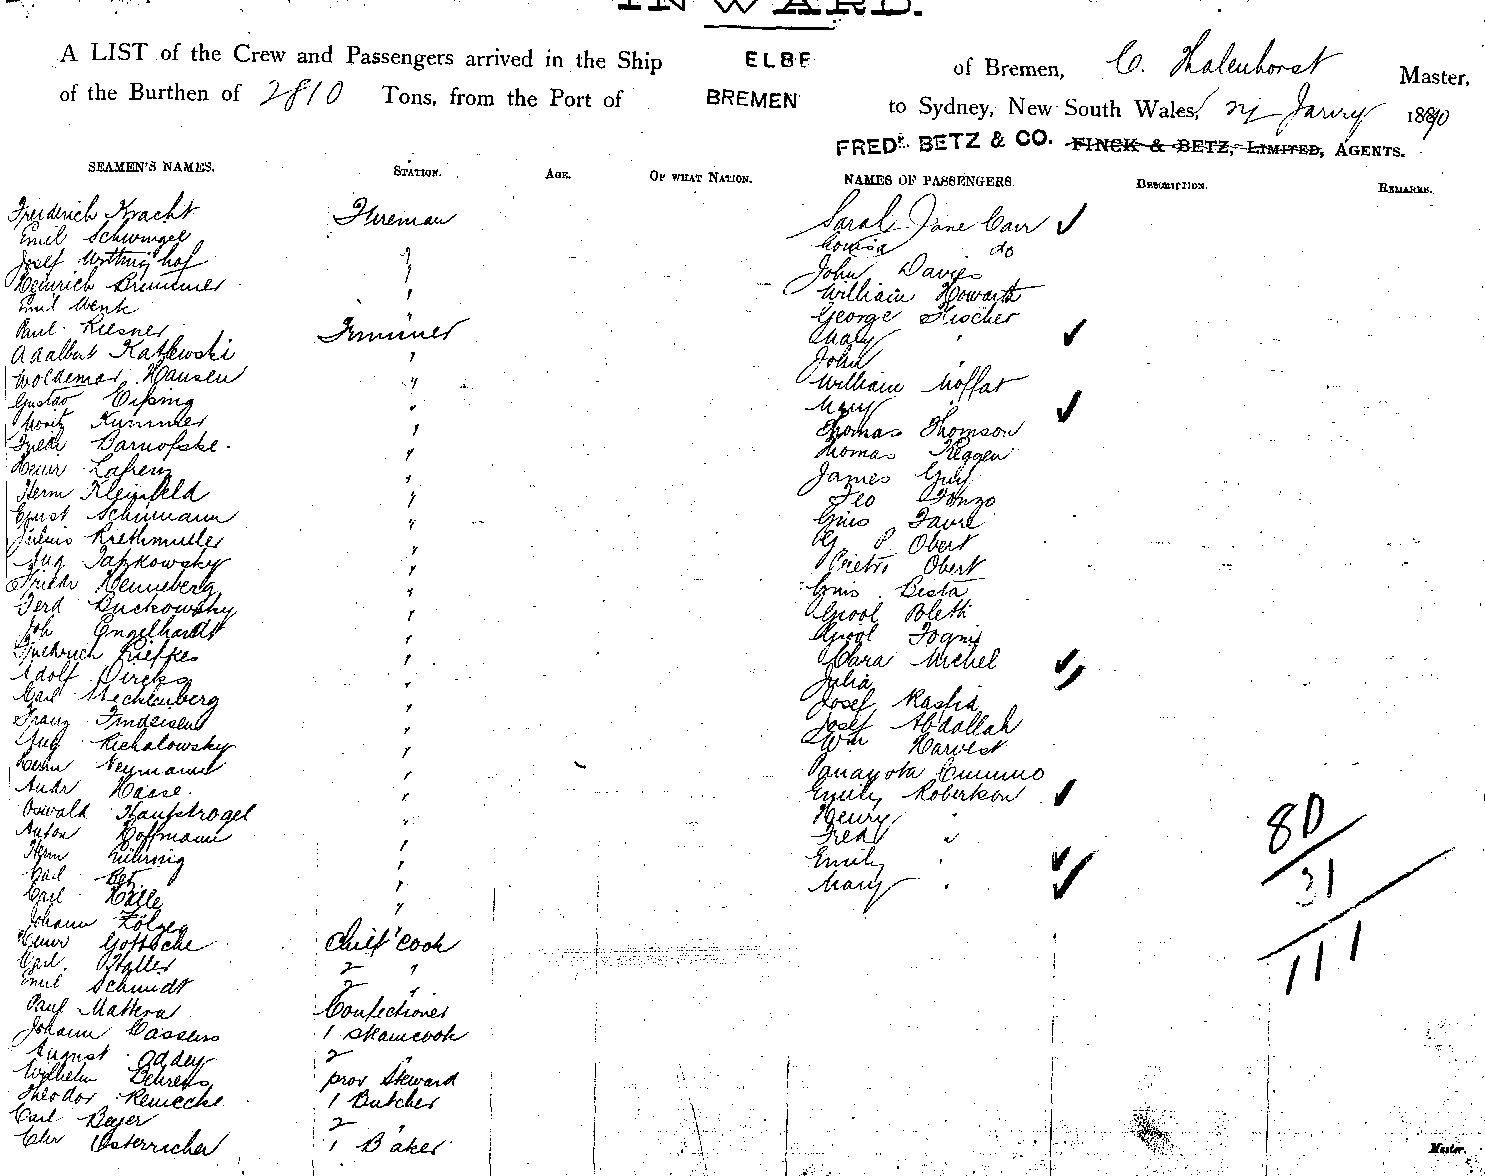 INWARD.
A LIST of the Crew and Passengers arrived in the Ship ELBE of Bremen, C. Thalenhorst Master,
of the Burthen of 2810 Tons, from the Port of BREMEN to Sydney, New South Wales, Janry 1890
FREDK. BETZ & CO. FINCK & BETZ, LIMITED, AGENTS.
SEAMEN'S NAMES. STATION. AGE. OF WHAT NATION. NAMES OF PASSENGERS. DESCRIPTION. REMARKS.
Frederich Kracht Fireman Sarah Jane Carr ✓
Emil Schwingel Louisa do
Josef John Davies
Heinrich Bremmer " William Howarth
Emil Wenk George Fischer
Paul Kiesner Trimmer Mary " ✓
Adalbert Katzlewski " John
Woldemar Hansen " William Moffat
Gustav " Mary ✓
Moritz Kummer " Thomas Thomson
Friedr Barnofske " Thomas
Heinr Lafrenz " James Guy
Herm Kleinfeld " Leo
Ernst Schumann " Favre
Julius Krethmuller " Obert
Aug Tapkowsky " Pietro Obert
Friedr Henneberg " Besta
Ferd Buckowsky "
Joh Engelhardt "
Friedrich Rieffkes " Clara Michel ✓
Adolf Dircks " Julia ✓
Carl Mechlenburg " Josef Rashid
Franz Findeisen " Josef Abdallah
Aug Michalowsky " Wm Harvest
Herm Neymann " Panayota
Andr Haase " Emily Robertson ✓
Oswald Haupstrogel " Henry "
Anton Hoffmann " Fred "
Herm " Emily " ✓
Carl " Mary " ✓
Carl Hille "
Johann
Heinr Gottsche Chief Cook
Carl Haller 2 "
Emil Schmidt 2 "
Paul Mattern Confectioner
Johann Cassens 1 Steamcook
August Addey 2 "
Wilhelm Behrens prov Steward
Theodor Reinecke 1 Butcher
Carl Beyer 2 "
Chr Osterricher 1 Baker
80
31
111
Master.